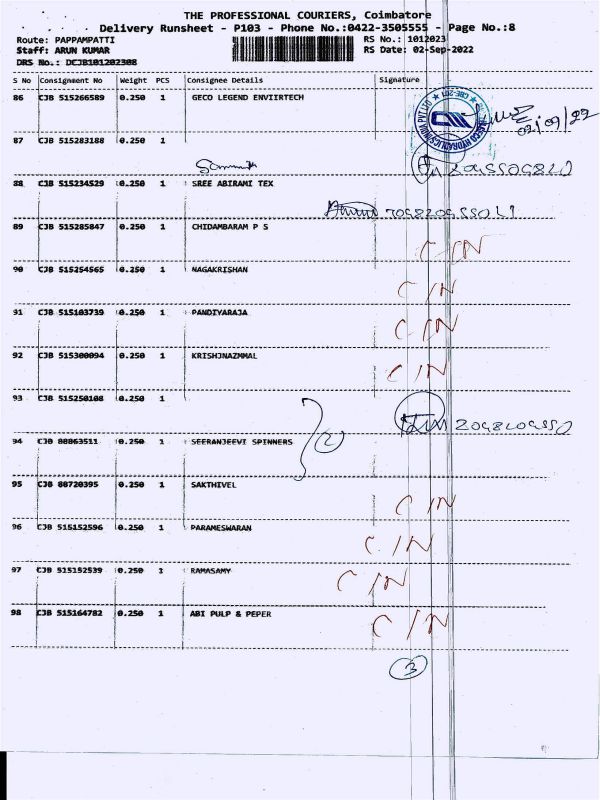 THE PROFESSIONAL COURIERS, Coimbatore
Delivery Runsheet - P103 - Phone No.:0422-3505555 - Page No.:8
Route: PAPPAMPATTI RS No.: 1012023
Staff: ARUN KUMAR RS Date: 02-Sep-2022
DRS No.: DCJB101202308
S No Consignment No Weight PCS Consignee Details Signature
86 CJB 515266589 0.250 1 GECO LEGEND ENVIIRTECH
02/09/22
87 CJB 515283188 0.250 1
88 CJB 515234529 0.250 1 SREE ABIRAMI TEX
89 CJB 515285847 0.250 1 CHIDAMBARAM P S
C/N
90 CJB 515254565 0.250 1 NAGAKRISHAN
C/N
91 CJB 515103739 0.250 1 PANDIYARAJA
C/N
92 CJB 515300094 0.250 1 KRISHJNAZMMAL
C/N
93 CJB 515250108 0.250 1
94 CJB 88863511 0.250 1 SEERANJEEVI SPINNERS
2
95 CJB 88720395 0.250 1 SAKTHIVEL
C/N
96 CJB 515152596 0.250 1 PARAMESWARAN
C/N
97 CJB 515152539 0.250 1 RAMASAMY
C/N
98 CJB 515164782 0.250 1 ABI PULP & PEPER
C/N
3